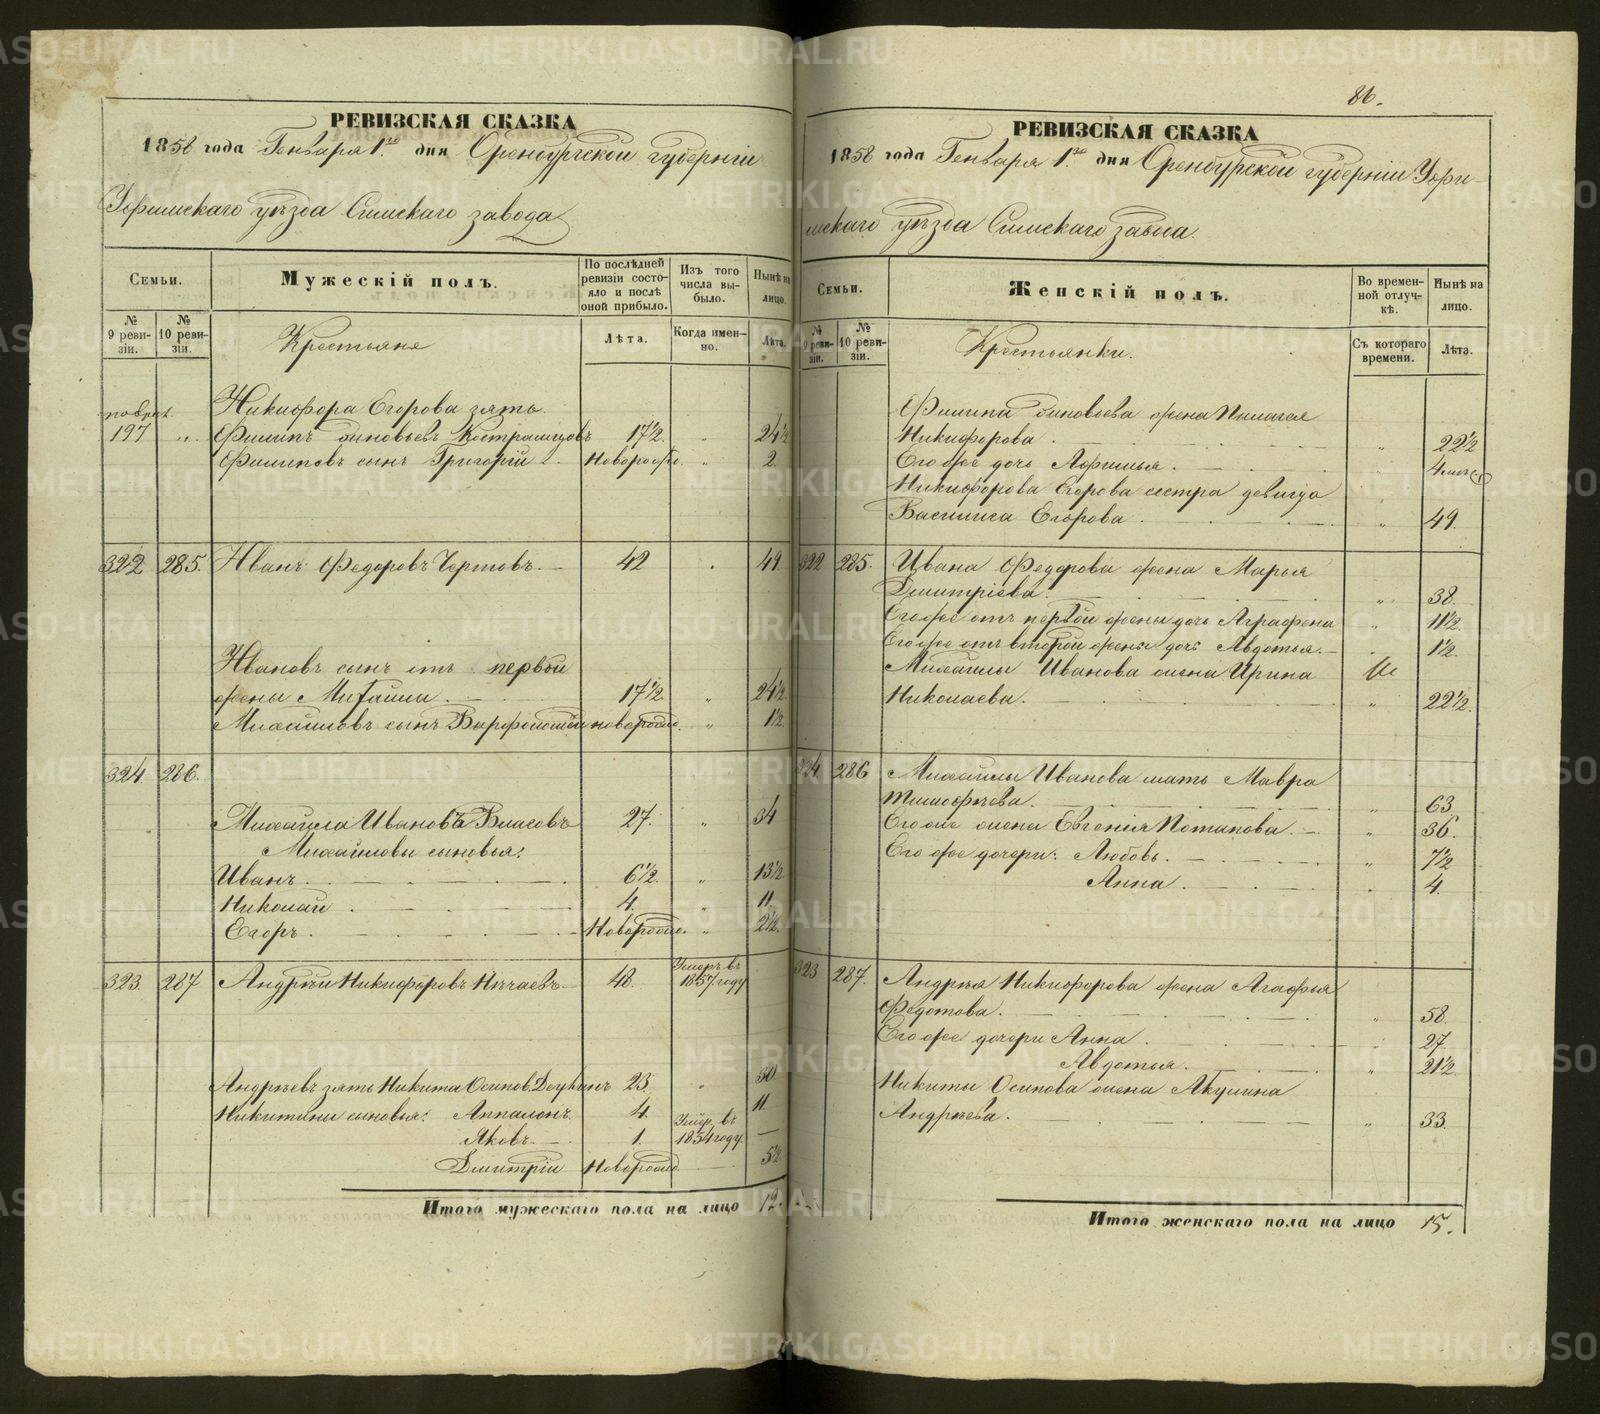 86.
РЕВИЗСКАЯ СКАЗКА
1858 года Генваря 1го дня Оренбургской губернiи
Уфимскаго уѣзда Симскаго завода
Семьи.
Мужескiй полъ.
По послѣдней ревизiи состояло и послѣ оной прибыло.
Изъ того числа выбыло.
Нынѣ на лицо.
№ 9 ревизiи.
№ 10 ревизiи.
Крестьяне
Лѣта.
Когда именно.
Лѣта.
Никифора Егорова зять
197 „ Филипъ Зиновьевъ Костромцовъ 17½. „ 24½
Филиповъ сынъ Григорiй Новорожд. „ 2.
322 285. Иванъ Федоровъ Чертовъ. 42 . 49.
Ивановъ сынъ отъ первой
жены Михайла. 17½. „ 24½
Михайловъ сынъ новорожд. „ 1½.
324. 286.
Михайла Ивановъ Власовъ 27. „ 34
Михайловы сыновья:
Иванъ. 6½. „ 13½
Николай. 4. „ 11.
Егоръ. Новорожд. „ 2½.
323. 287 Андрей Никифоровъ Нечаевъ 48. Умеръ въ 1857 году
Андреевъ зять Никита Осипов. 23. „ 30
Никитины сыновья: Аппалонъ. 4. „ 11
Яковъ. 1. Умер. въ 1854 году. —
Дмитрiй Новорожд. 5½
Итого мужескаго пола на лицо 12.
РЕВИЗСКАЯ СКАЗКА
1858 года Генваря 1го дня Оренбургской губернiи Уфи-
мскаго уѣзда Симскаго завода.
Семьи.
Женскiй полъ.
Во временной отлучкѣ.
Нынѣ на лицо.
№ 9 ревизiи.
№ 10 ревизiи.
Крестьянки.
Съ котораго времени.
Лѣта.
Филипа Зиновьева жена Пелагея
Никифорова. „ 22½
Его же дочь Афимья. „ 4 мѣс.
Никифорова Егорова сестра девица
Василиса Егорова. „ 49.
322 285. Ивана Федорова жена Марья
Дмитрiева. „ 38.
Его же отъ первой жены дочь Аграфена „ 11½.
Его же отъ второй жены дочь Авдотья. „ 1½.
Михайлы Иванова жена Ирина
Николаева. „ 22½.
324. 286 Михайлы Иванова мать Мавра
Тимофѣева. „ 63.
Его же жена Евгенiя Потапова. „ 36.
Его же дочери: Любовь. „ 7½
Анна. „ 4.
323 287. Андрея Никифорова жена Агафья
Федотова. „ 58.
Его же дочери Анна. „ 27.
Авдотья. „ 21½
Никиты Осипова жена Акулина
Андреева. „ 33.
Итого женскаго пола на лицо 15.
METRIKI.GASO-URAL.RU